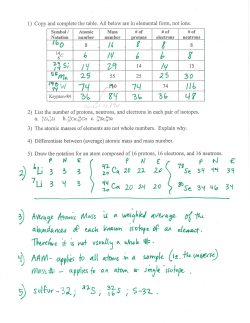 1) Copy and complete the table. All below are in elemental form, not ions.
Symbol / Notation Atomic number Mass number # of protons # of electrons # of neutrons
16O 8 16 8 8 8
6 14 6 6 8
Si 14 29 14 14 15
55Mn 25 55 25 25 30
W 74 190 74 74 116
Krypton-84 36 84 36 36 48
2) List the number of protons, neutrons, and electrons in each pair of isotopes.
3) The atomic masses of elements are not whole numbers. Explain why.
4) Differentiate between (average) atomic mass and mass number.
5) Draw the notation for an atom composed of 16 protons, 16 electrons, and 16 neutrons.
P N E P N E P N E
2) 6 Li 3 3 3 42 20 Ca 20 22 20 78 Se 34 44 34
7 Li 3 4 3 44 20 Ca 20 24 20 80 Se 34 46 34
3) Average Atomic Mass is a weighted average of the
abundances of each known isotope of an element.
Therefore it is not usually a whole #.
4) AAM - applies to all atoms in a sample (ie. the universe)
mass # - applies to an atom or single isotope.
5) sulfur-32; 32S; 32 16 S; S-32.